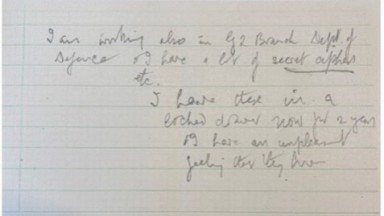 I am working also in G2 Branch Dept of
Defence & I have a lot of secret ciphers
etc.
I have these in a
locked drawer now for a year
& I have an unpleasant
feeling that they have